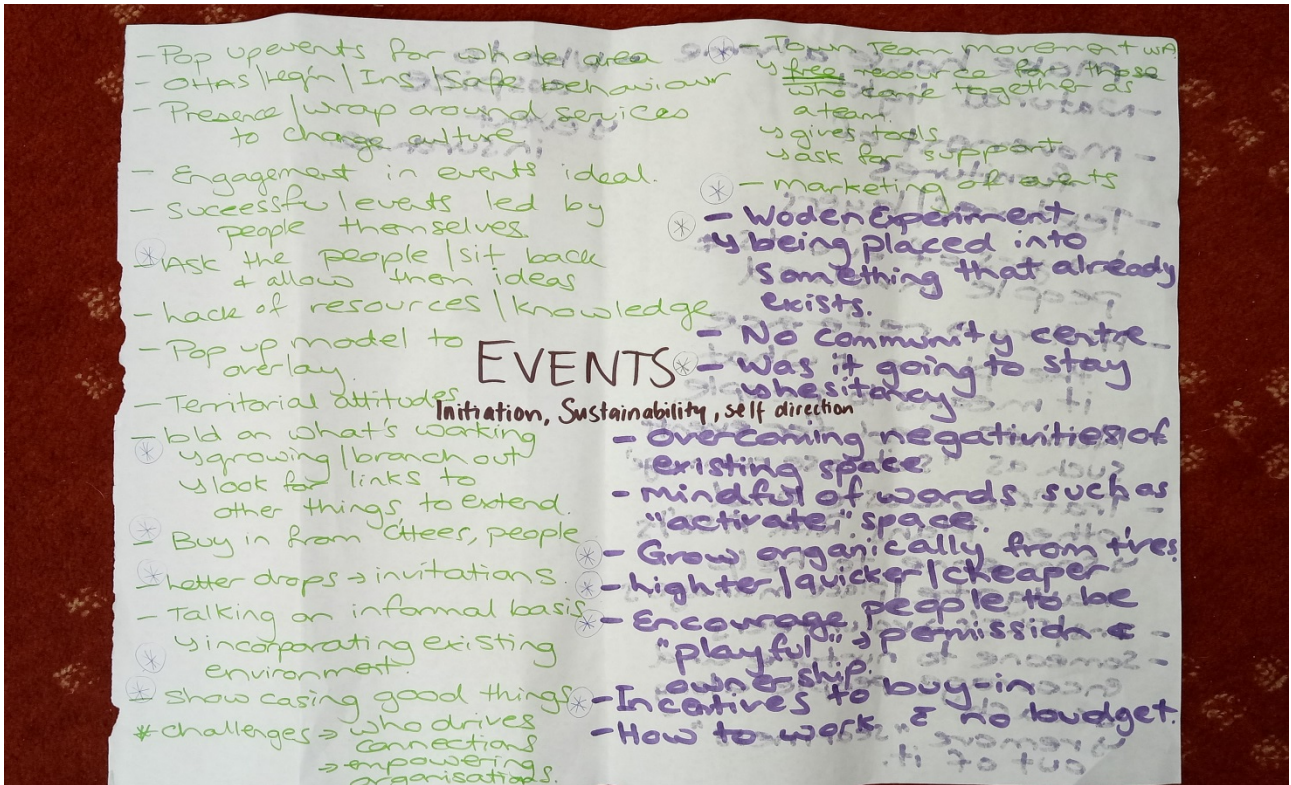 - Pop up events for whole/area
- OHAS/Legin/Ins/Safe behaviour
- Presence/wrap around services
to change culture
- Engagement in events ideal.
- Successful events led by
people themselves.
- Ask the people/sit back
+ allow them ideas
- Lack of resources/knowledge
- Pop up model to
overlay.
- Territorial attitudes
- bld on what's working
↳ growing/branch out
↳ look for links to
other things to extend.
- Buy in from c'ttees, people
- Letter drops → invitations.
- Talking on informal basis
↳ incorporating existing
environment.
show casing good things
# challenges → who drives
connections
→ empowering
organisations.
EVENTS
Initiation, Sustainability, self direction
- Town Team movement WA
↳ free resource for those
who come together as
a team.
↳ gives tools
↳ ask for support
- marketing of events
- Woden Experiment
↳ being placed into
something that already
exists.
- No community centre
- Was it going to stay
↳ hesitancy.
- overcoming negativities of
existing space
- mindful of words such as
"activate," space.
- Grow organically from
- Lighter/quicker/cheaper
- Encourage people to be
"playful" → permission &
ownership.
- Incentives to buy-in
- How to work & no budget.